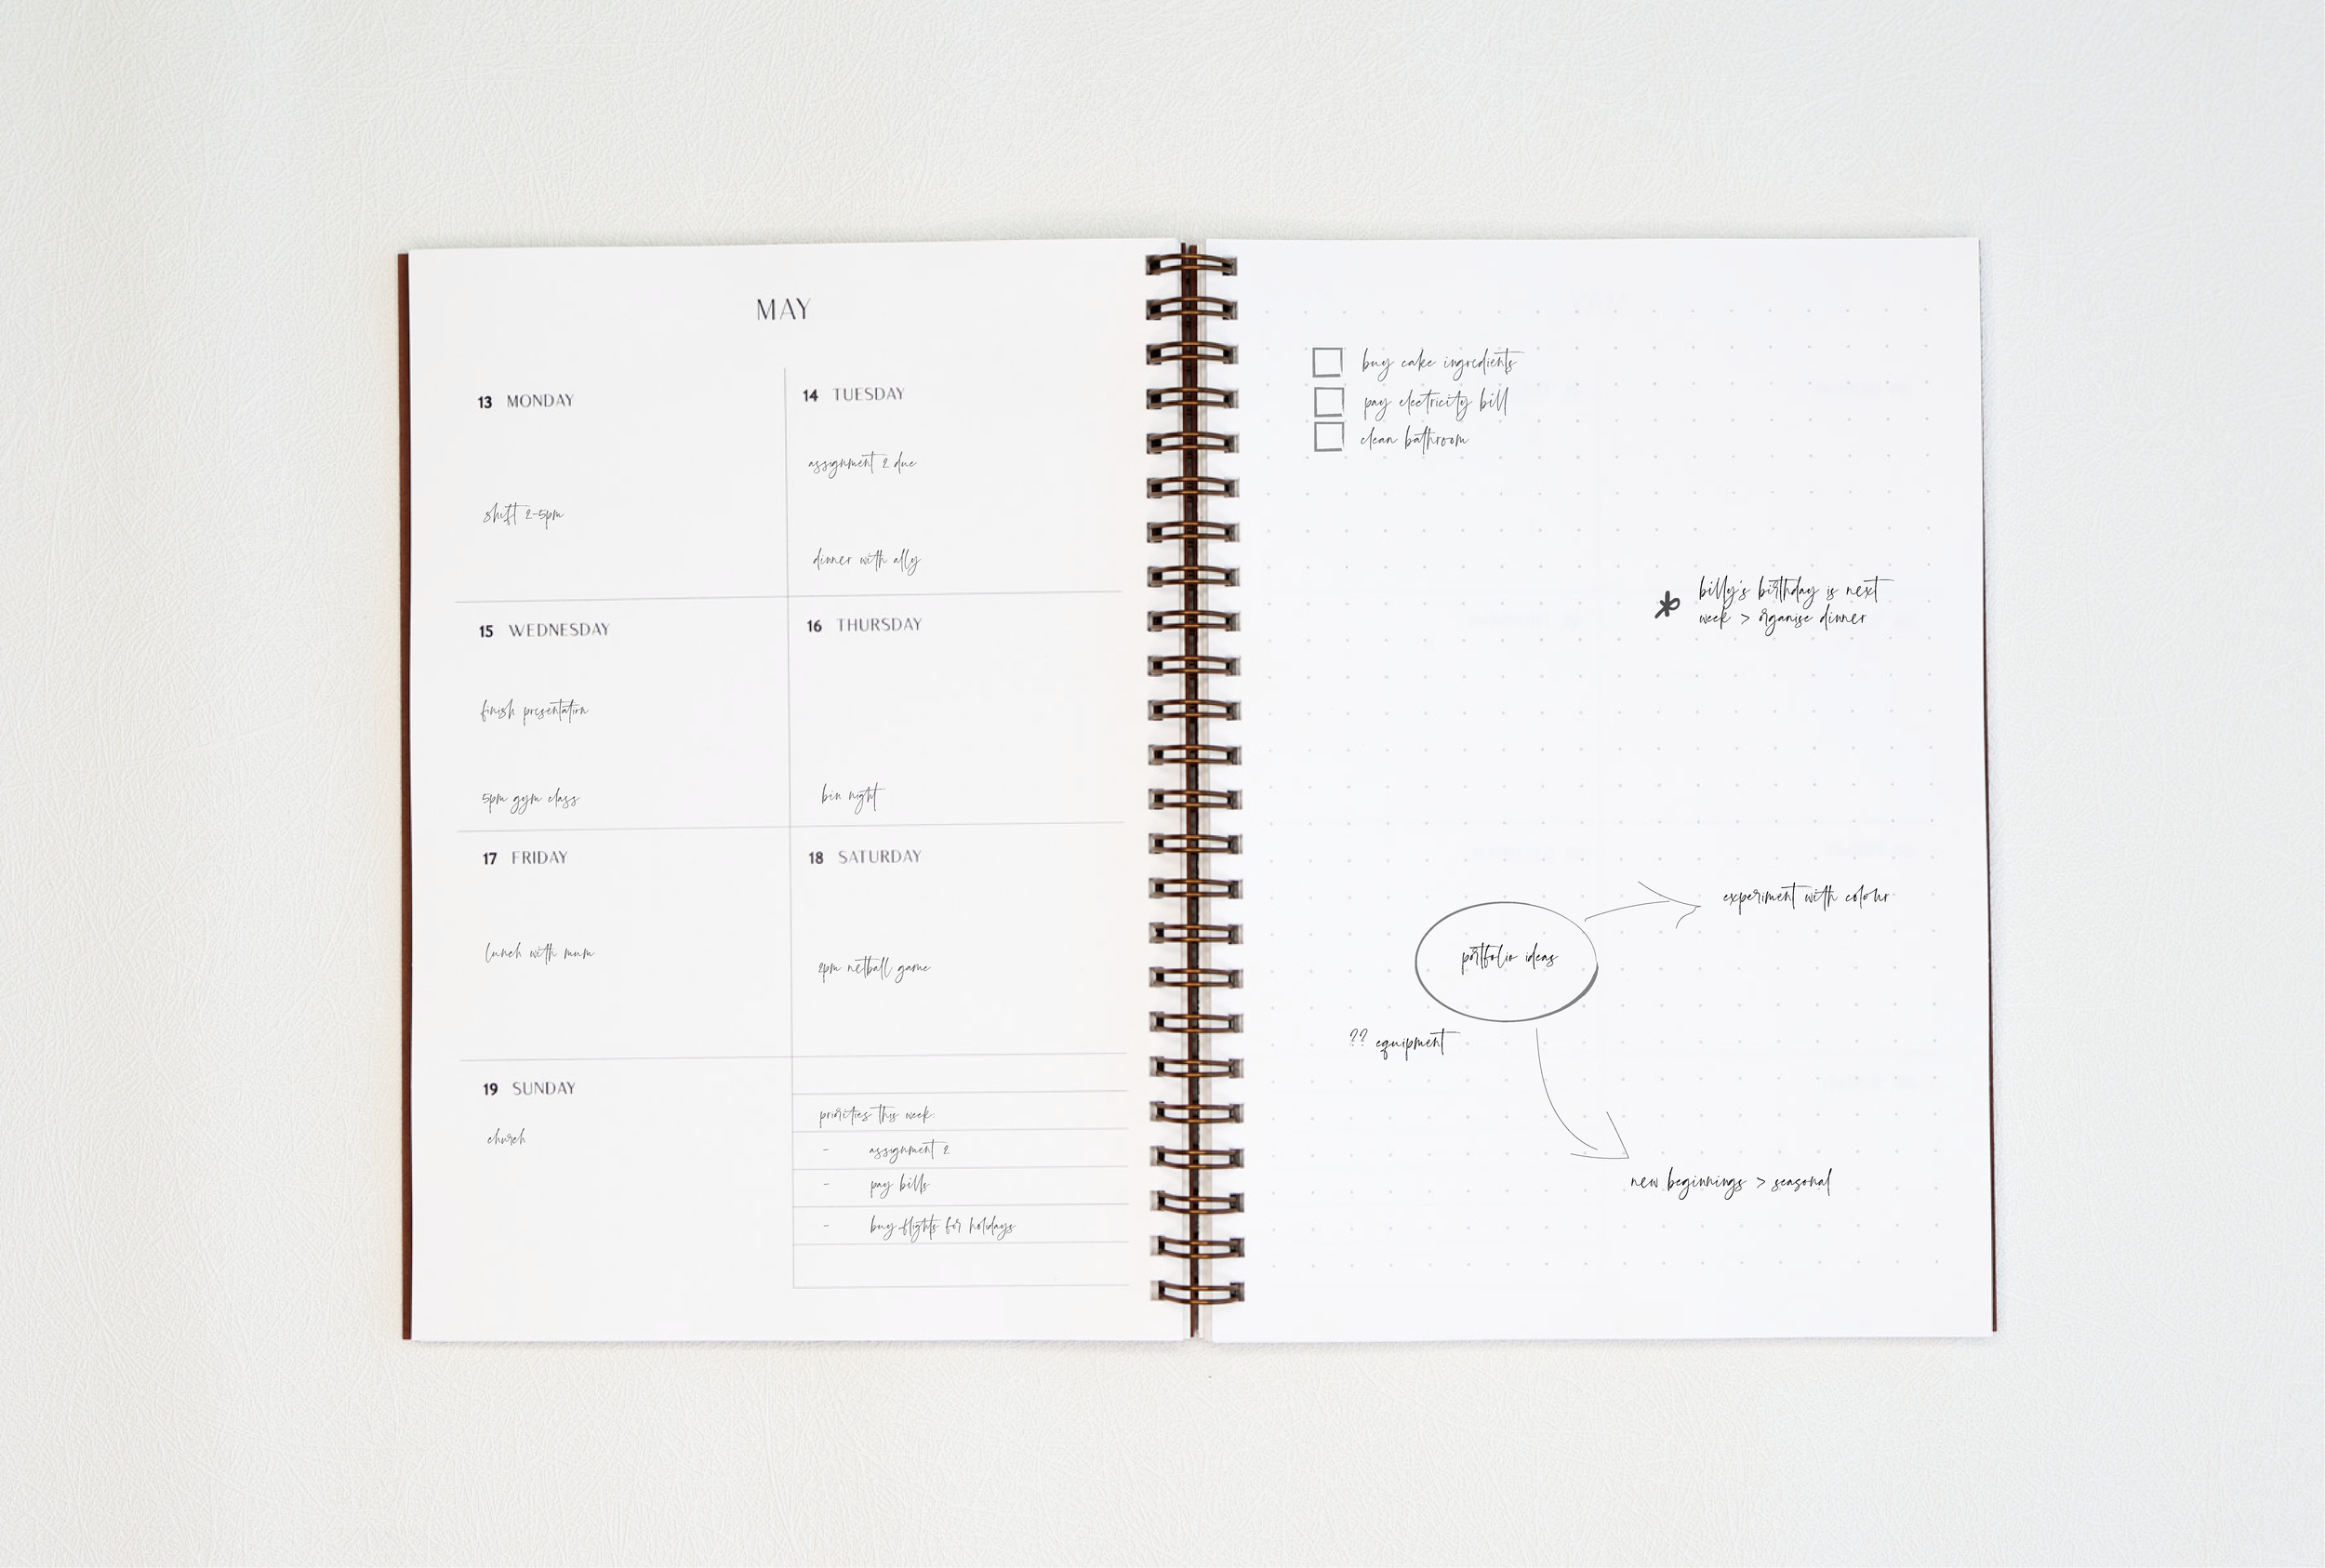 MAY
13 MONDAY
shift 2-5pm
14 TUESDAY
assignment 2 due
dinner with ally
15 WEDNESDAY
finish presentation
5pm gym class
16 THURSDAY
bin night
17 FRIDAY
lunch with mum
18 SATURDAY
2pm netball game
19 SUNDAY
church
priorities this week:
- assignment 2
- pay bills
- buy flights for holidays
buy cake ingredients
pay electricity bill
clean bathroom
* billy's birthday is next
week > organise dinner
portfolio ideas
experiment with colour
?? equipment
new beginnings > seasonal